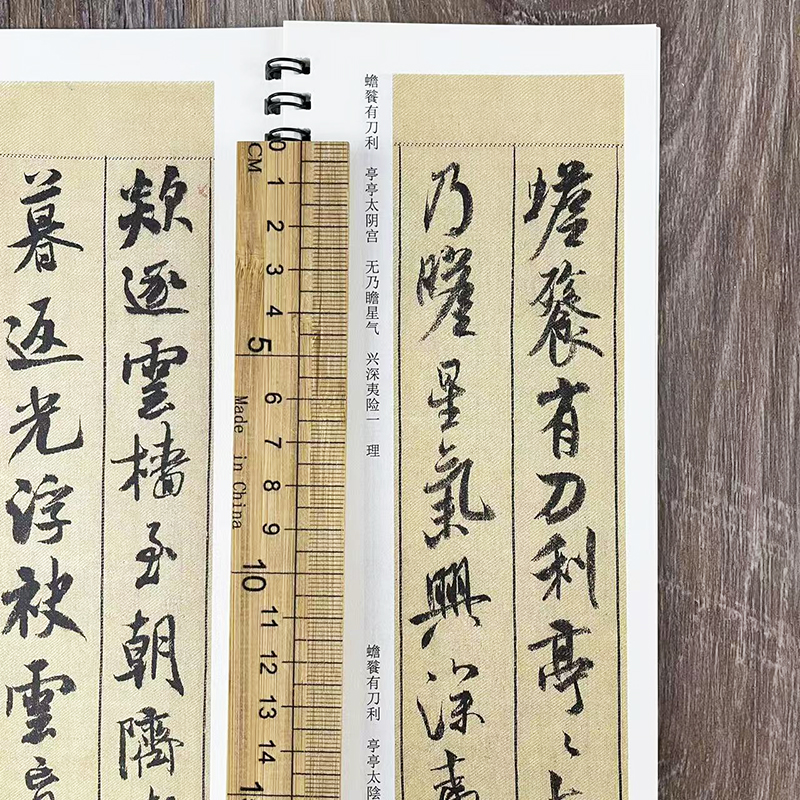 蟾餮有刀利亭〻
乃瞻星氣興深夷
蟾餮有刀利 亭亭太阴宫 无乃瞻星气 兴深夷险一 理
蟾餮有刀利 亭亭太陰
0 CM 1 2 3 4 5 6 7 8 9 10 11 12 13 14
Made in China
欻逐雲檣至朝隮
暮返光浮袂雲